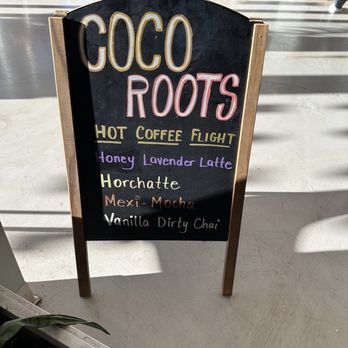 COCO
ROOTS
HOT COFFEE FLIGHT
Honey Lavender Latte
Horchatte
Mexi-Mocha
Vanilla Dirty Chai